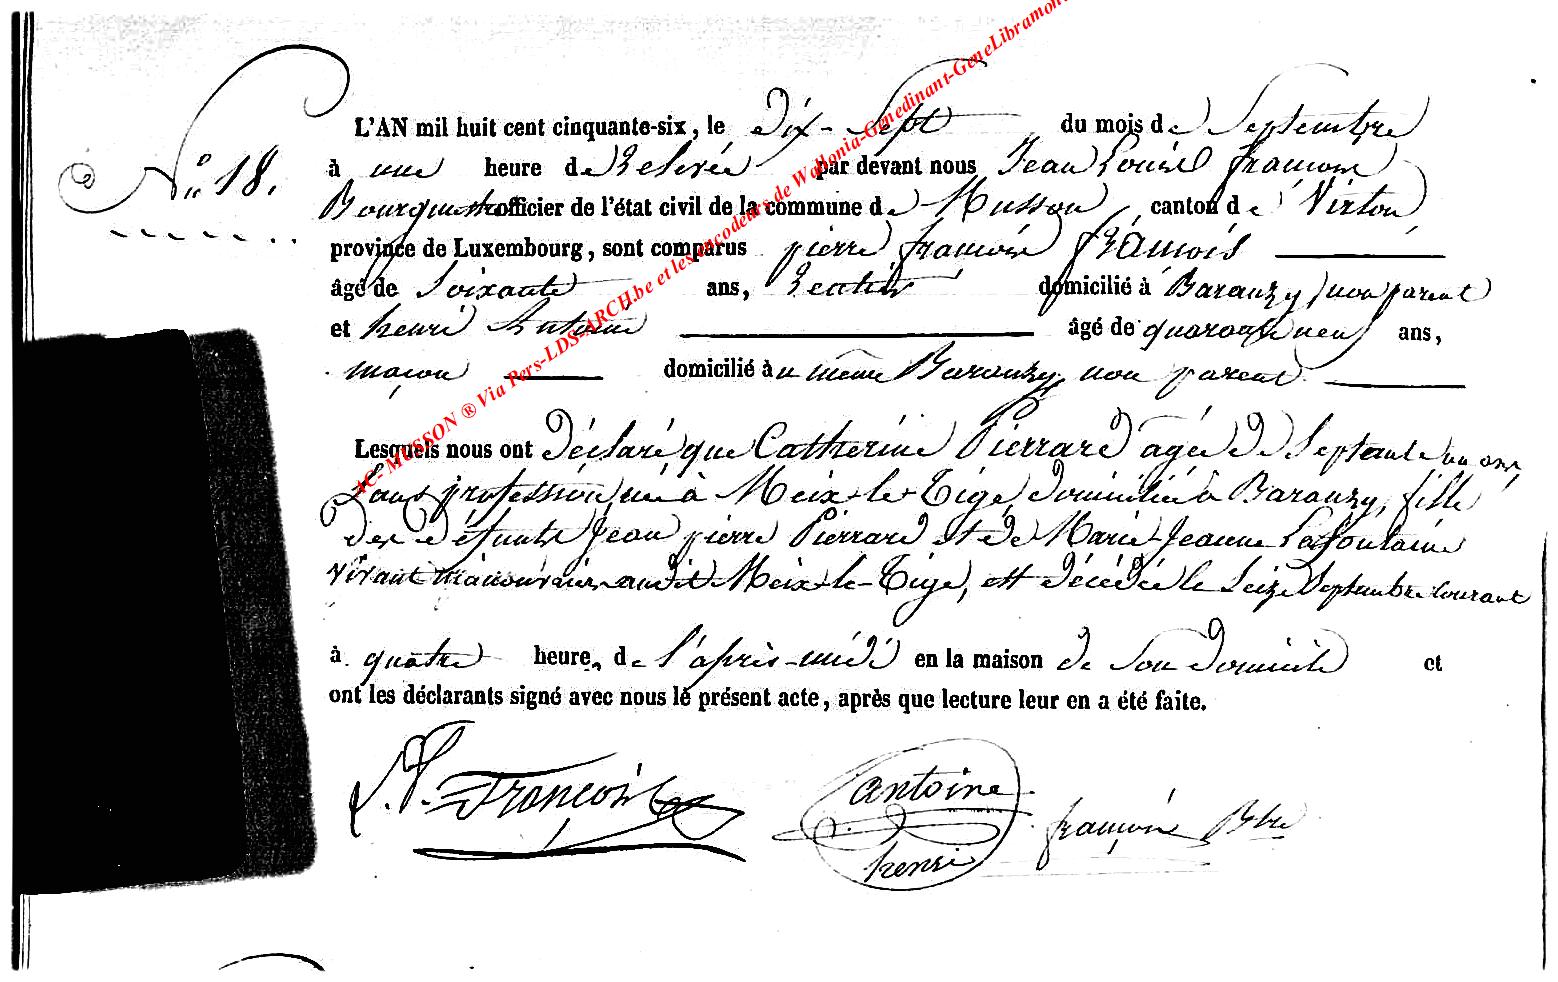 L'AN mil huit cent cinquante-six, le Dix-Sept du mois de Septembre
N° 18. à une heure de Relevée par devant nous Jean Louis François
Bourguemestre officier de l'état civil de la commune de Musson canton de Virton
province de Luxembourg, sont comparus pierre françois françois
âgé de Soixante ans, Rentier domicilié à Baranzy, non parent
et henri Antoine âgé de quarante neuf ans,
maçon domicilié au même Baranzy, non parent.
Lesquels nous ont Déclaré que Catherine Pierrard agée de Septante un ans,
Sans profession née à Meix-le-Tige, Domiciliée à Baranzy, fille
des défunts Jean pierre Pierrard et de Marie-Jeanne Lafontaine
vivant manouvriers audit Meix-le-Tige, est décédée le Seize Septembre courant
à quatre heures de l'après-midi en la maison de Son domicile et
ont les déclarants signé avec nous le présent acte, après que lecture leur en a été faite.
P. françois antoine françois Btre
henri
AC- MUSSON ® Via Pers-LDS-ARCH.be et les encodeurs de Wallonia-Genedinant-GeneLibramon